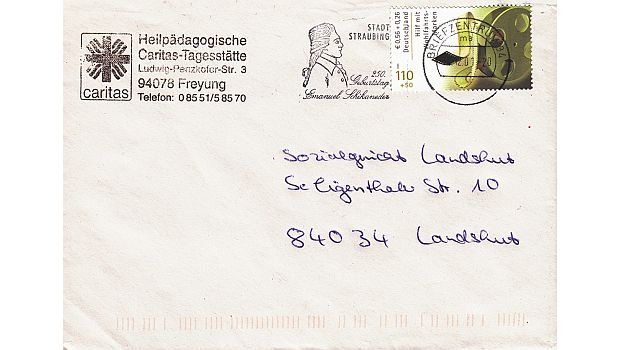 Heilpädagogische
Caritas-Tagesstätte
Ludwig-Penzkofer-Str. 3
94078 Freyung
Telefon: 08551/58570
caritas
STADT
STRAUBING
250.
Geburtstag
Emanuel Schikaneder
110
+50
€ 0,56 + 0,26
Deutschland
Hilf mit
Wohlfahrts-
marken
BRIEFZENTRUM
Sozialgericht Landshut
Seligenthaler Str. 10
84034 Landshut